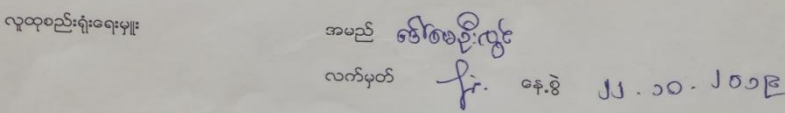 လူထုစည်းရုံးရေးမှူး အမည် ဒေါ်မေဦးလွင်
လက်မှတ် နေ့စွဲ ၂၂.၁၀.၂၀၁၉